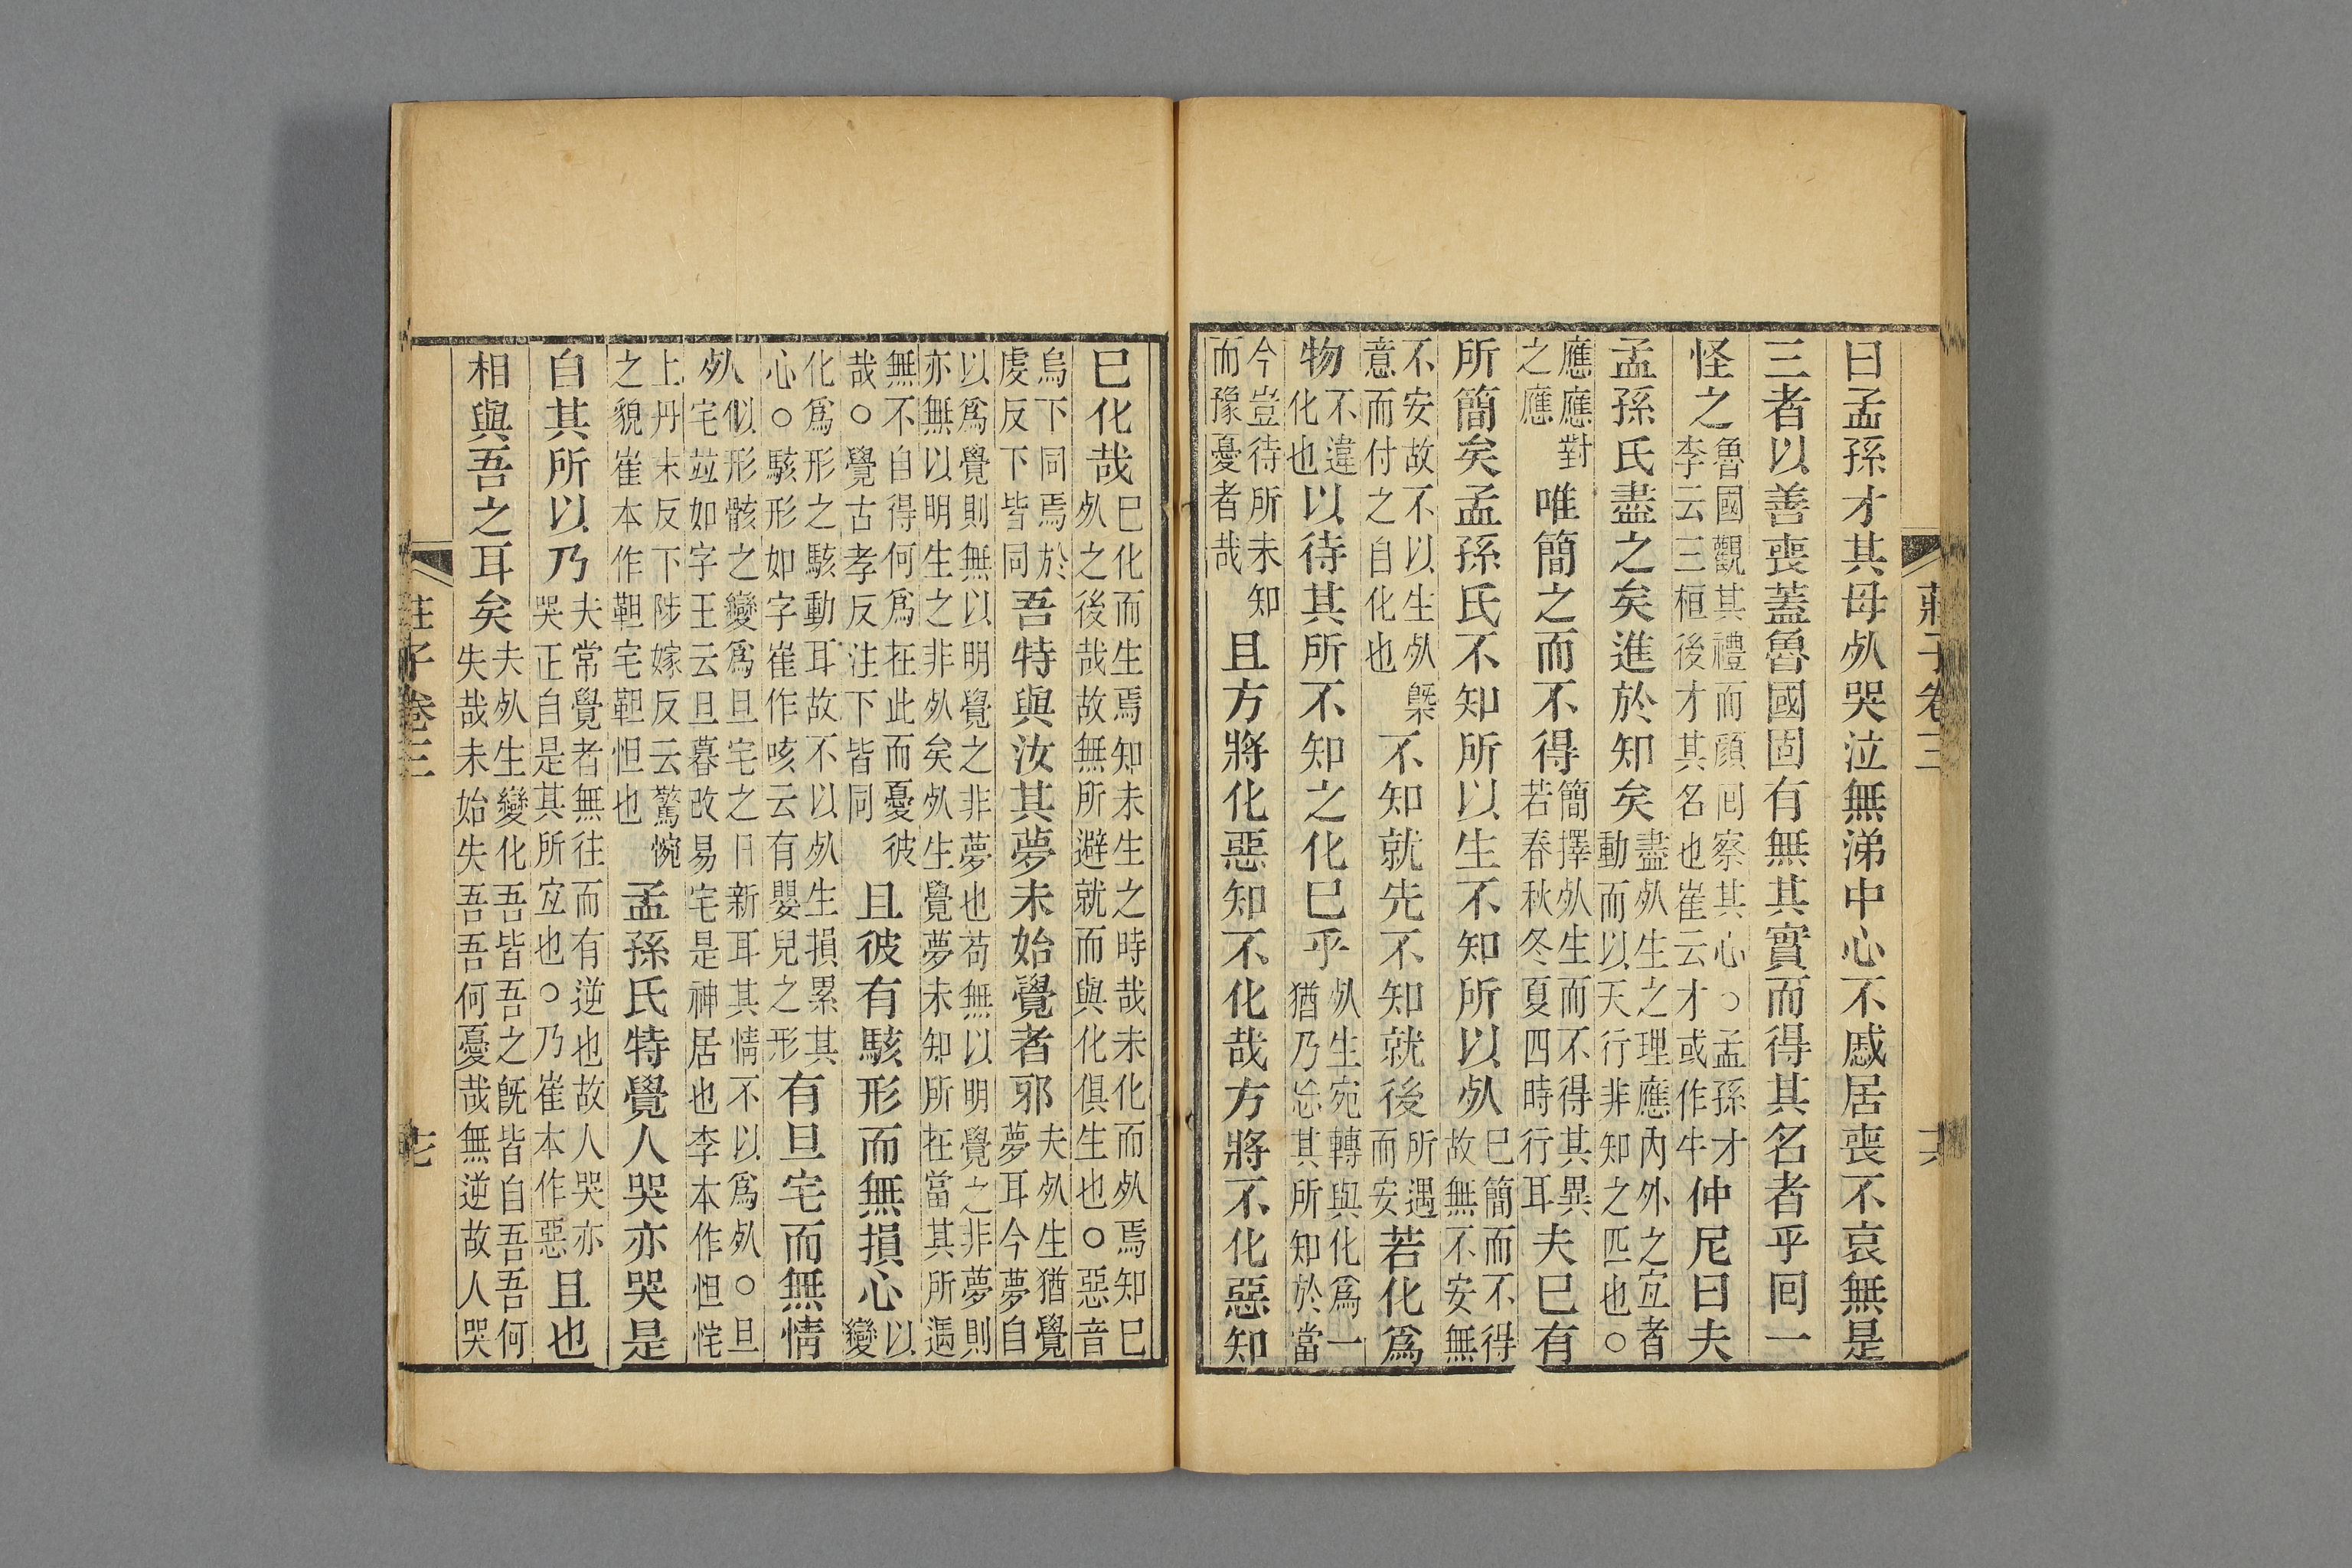 莊子卷三 十六
曰孟孫才其母死哭泣無涕中心不慼居喪不哀無是
三者以善喪蓋魯國固有無其實而得其名者乎回一
怪之魯國觀其禮而顔回察其心○孟孫才李云三桓後才其名也崔云才或作牛仲尼曰夫
孟孫氏盡之矣進於知矣盡死生之理應內外之宜者動而以天行非知之匹也○
應應對之應唯簡之而不得簡擇死生而不得其異若春秋冬夏四時行耳夫已有
所簡矣孟孫氏不知所以生不知所以死已簡而不得故無不安無
不安故不以生死槩意而付之自化也不知就先不知就後所遇而安若化爲
物不違化也以待其所不知之化已乎死生宛轉與化爲一猶乃忘其所知於當
今豈待所未知而豫憂者哉且方將化惡知不化哉方將不化惡知
已化哉已化而生焉知未生之時哉未化而死焉知已死之後哉故無所避就而與化俱生也○惡音
烏下同焉於虔反下皆同吾特與汝其夢未始覺者邪夫死生猶覺夢耳今夢自
以爲覺則無以明覺之非夢也苟無以明覺之非夢則亦無以明生之非死矣死生覺夢未知所在當其所遇
無不自得何爲在此而憂彼哉○覺古孝反注下皆同且彼有駭形而無損心以變
化爲形之駭動耳故不以死生損累其心○駭形如字崔作咳云有嬰兒之形有旦宅而無情
死似形骸之變爲旦宅之日新耳其情不以爲死○旦宅並如字王云旦暮改易宅是神居也李本作怛侘
上丹末反下陟嫁反云驚惋之貌崔本作靼宅靼怛也孟孫氏特覺人哭亦哭是
自其所以乃夫常覺者無往而有逆也故人哭亦哭正自是其所宜也○乃崔本作惡且也
相與吾之耳矣夫死生變化吾皆吾之旣皆自吾吾何失哉未始失吾吾何憂哉無逆故人哭
莊子卷三 十七